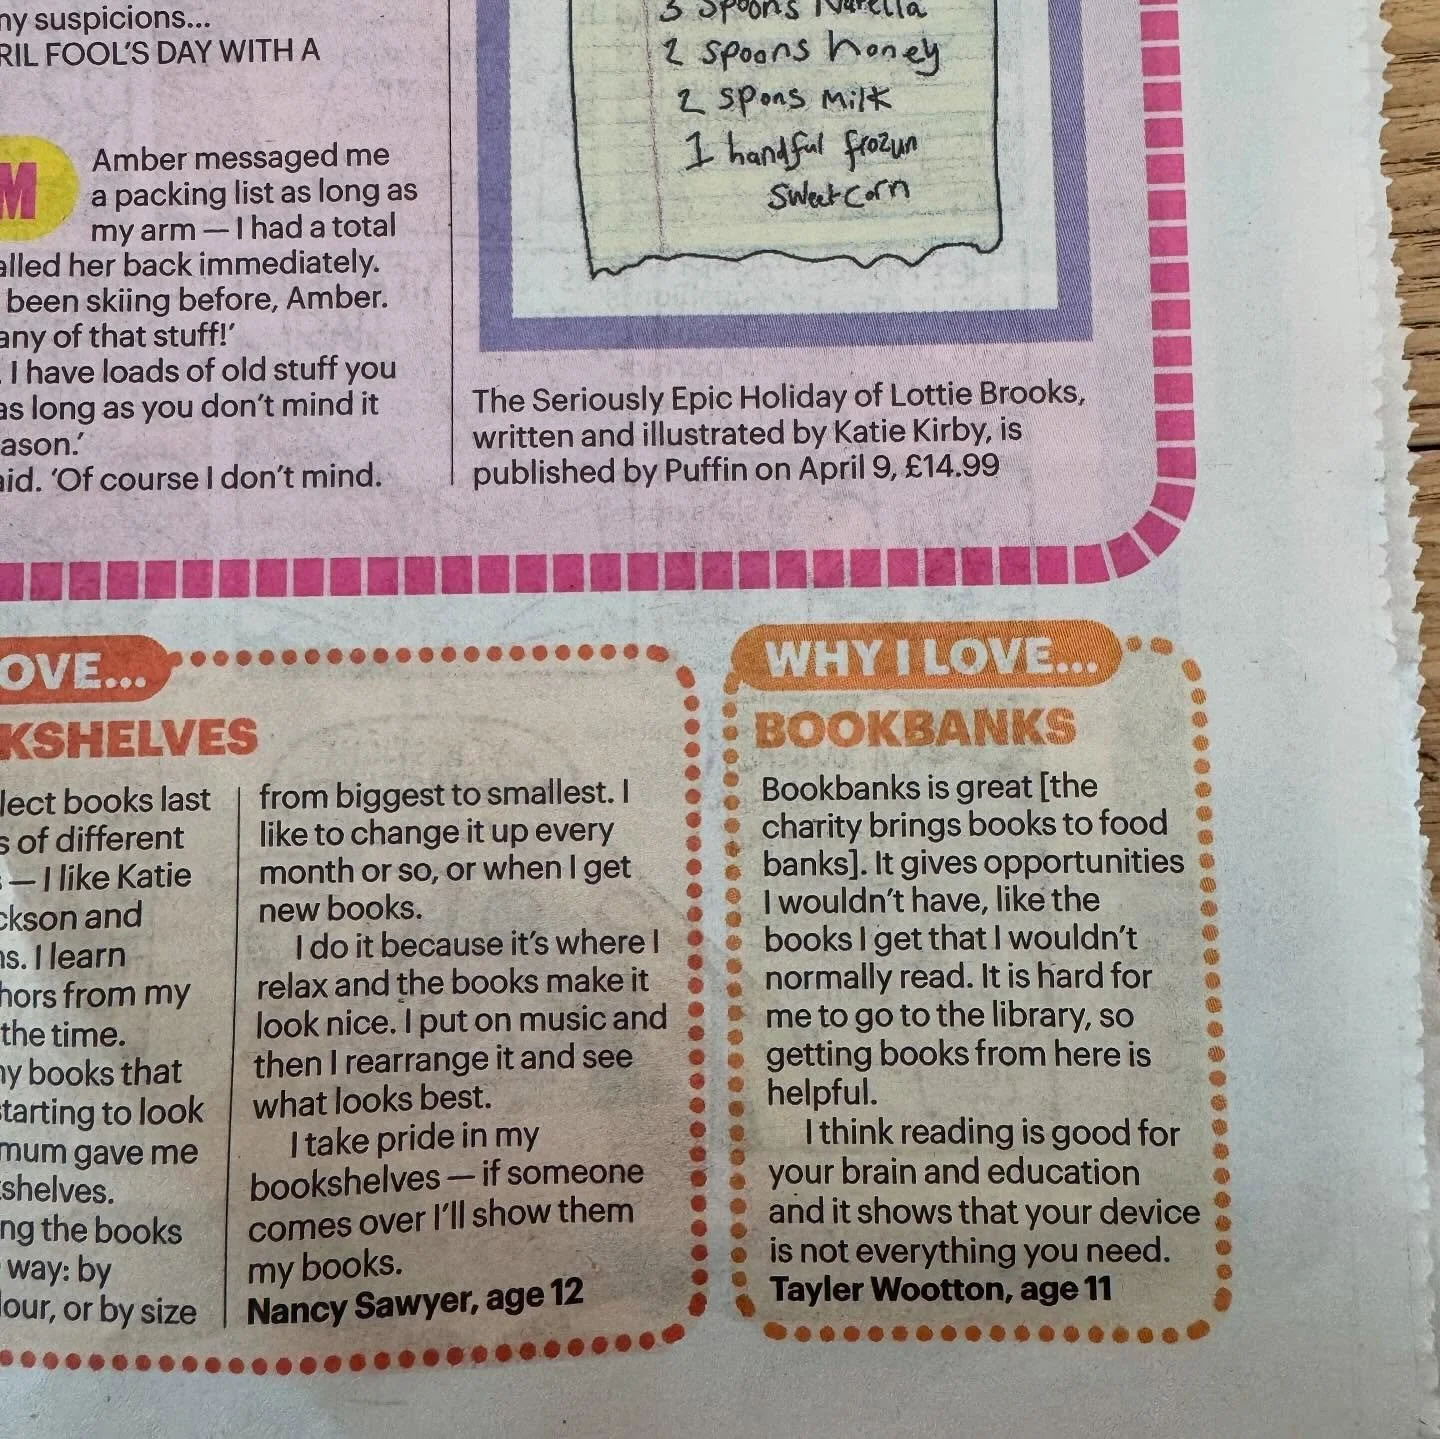 ny suspicions...
RIL FOOL'S DAY WITH A
M
Amber messaged me
a packing list as long as
my arm — I had a total
alled her back immediately.
been skiing before, Amber.
any of that stuff!'
. I have loads of old stuff you
as long as you don't mind it
ason.'
aid. 'Of course I don't mind.
3 Spoons Nutella
2 spoons honey
2 spons Milk
1 handful frozun
Sweetcorn
The Seriously Epic Holiday of Lottie Brooks,
written and illustrated by Katie Kirby, is
published by Puffin on April 9, £14.99
OVE...
KSHELVES
lect books last
s of different
s — I like Katie
ckson and
ns. I learn
hors from my
the time.
ny books that
starting to look
mum gave me
kshelves.
ng the books
way: by
lour, or by size
from biggest to smallest. I
like to change it up every
month or so, or when I get
new books.
I do it because it's where I
relax and the books make it
look nice. I put on music and
then I rearrange it and see
what looks best.
I take pride in my
bookshelves — if someone
comes over I'll show them
my books.
Nancy Sawyer, age 12
WHY I LOVE...
BOOKBANKS
Bookbanks is great [the
charity brings books to food
banks]. It gives opportunities
I wouldn't have, like the
books I get that I wouldn't
normally read. It is hard for
me to go to the library, so
getting books from here is
helpful.
I think reading is good for
your brain and education
and it shows that your device
is not everything you need.
Tayler Wootton, age 11